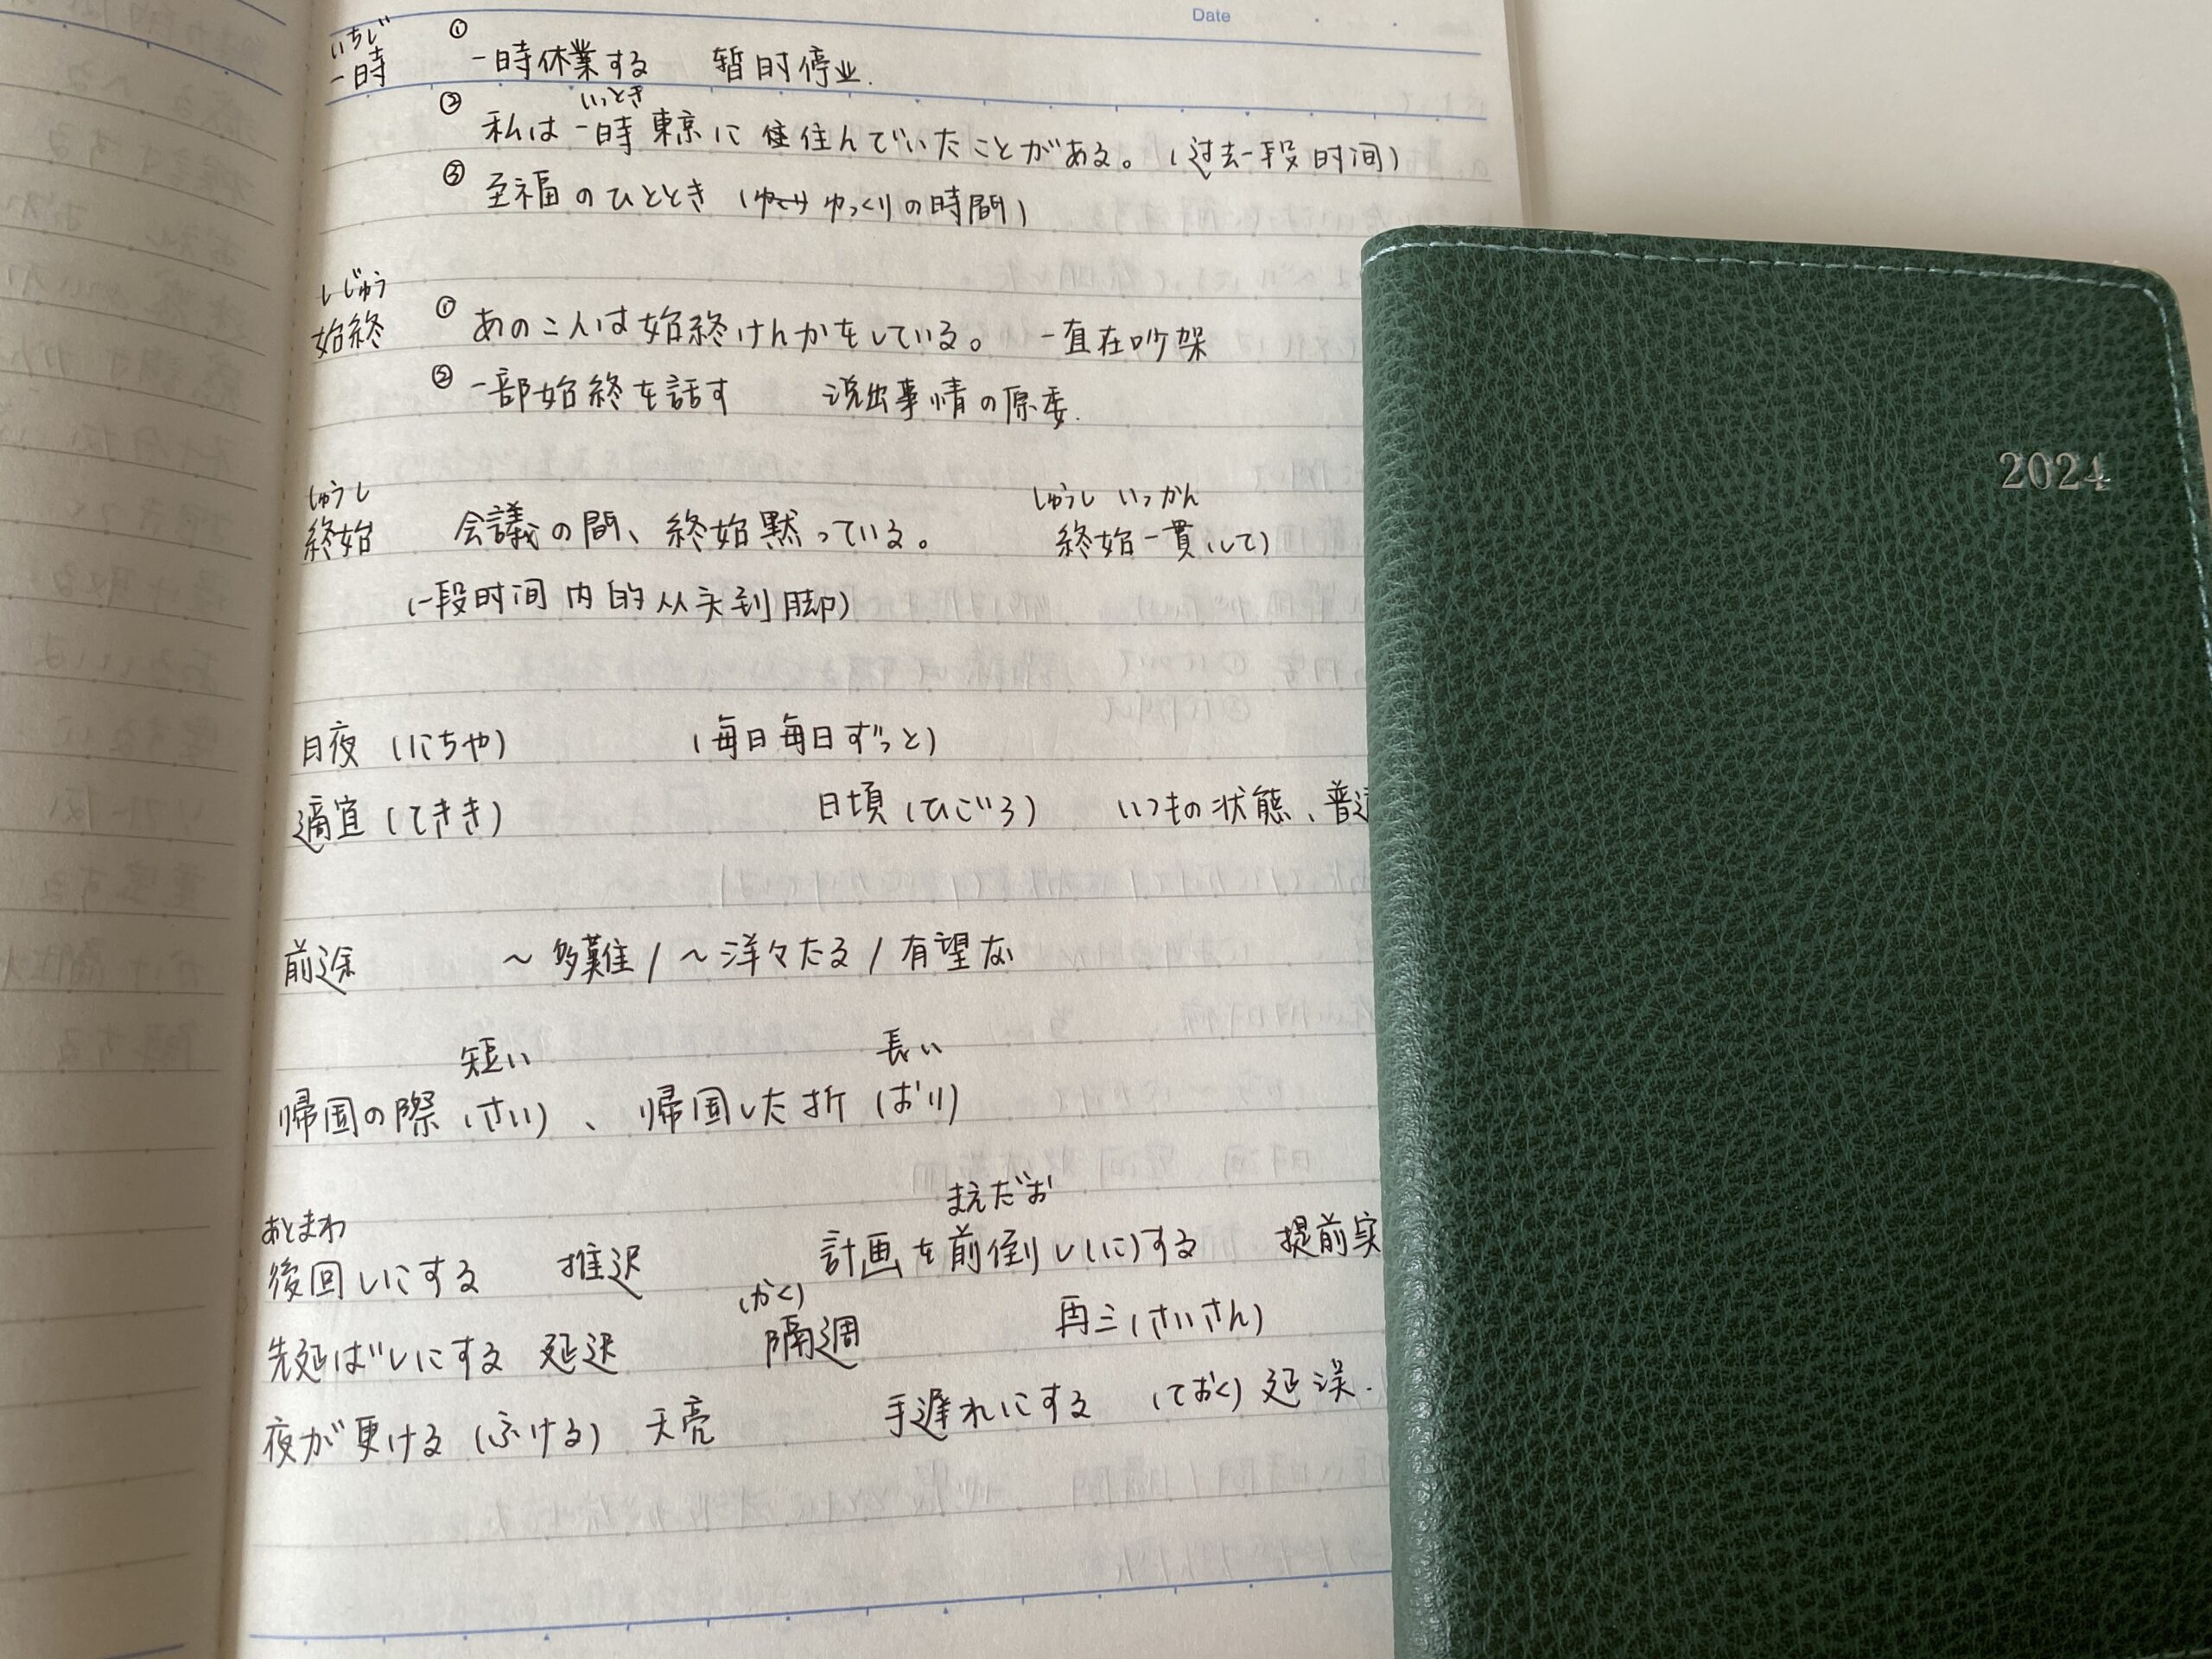 Date
いちじ
一時 ① 一時休業する 暂时停业.
いっとき
② 私は一時東京に住住んでいたことがある。(过去一段时间)
③ 至福のひととき (ゆっくりの時間)
しじゅう
始終 ① あの二人は始終けんかをしている。 一直在吵架
② 一部始終を話す 说出事情の原委.
しゅうし しゅうし いっかん
終始 会議の間、終始黙っている。 終始一貫(して)
(一段时间内的从头到脚)
日夜 (にちや) (毎日毎日ずっと)
適宜 (てきき) 日頃 (ひごろ) いつもの状態、普通
前途 〜多難 / 〜洋々たる / 有望な
短い 長い
帰国の際 (さい) 、 帰国した折 (おり)
あとまわ まえだお
後回しにする 推迟 計画を前倒し(に)する 提前实
(かく)
先延ばしにする 延迟 隔週 再三 (さいさん)
夜が更ける (ふける) 天亮 手遅れにする (ておく) 延误.
2024